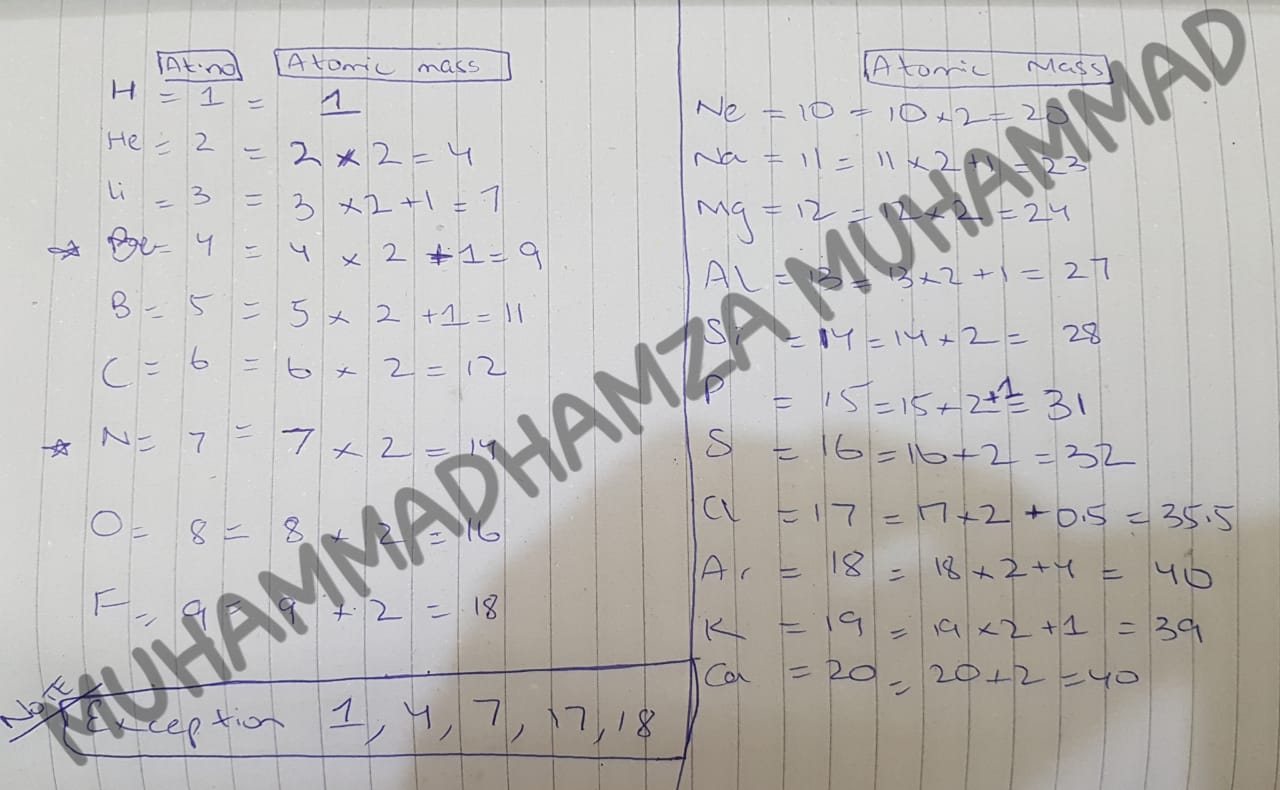 At.no Atomic mass
H = 1 = 1
He = 2 = 2 × 2 = 4
Li = 3 = 3 × 2 + 1 = 7
☆ Be = 4 = 4 × 2 + 1 = 9
B = 5 = 5 × 2 + 1 = 11
C = 6 = 6 × 2 = 12
☆ N = 7 = 7 × 2 = 14
O = 8 = 8 × 2 = 16
F = 9 = 9 × 2 = 18
NOTE
Exception 1, 4, 7, 17, 18
Atomic Mass
Ne = 10 = 10 × 2 = 20
Na = 11 = 11 × 2 + 1 = 23
Mg = 12 = 12 × 2 = 24
Al = 13 = 13 × 2 + 1 = 27
Si = 14 = 14 × 2 = 28
P = 15 = 15 × 2 + 1 = 31
S = 16 = 16 × 2 = 32
Cl = 17 = 17 × 2 + 0.5 = 35.5
Ar = 18 = 18 × 2 + 4 = 40
K = 19 = 19 × 2 + 1 = 39
Ca = 20 = 20 × 2 = 40
MUHAMMADHAMZA MUHAMMAD